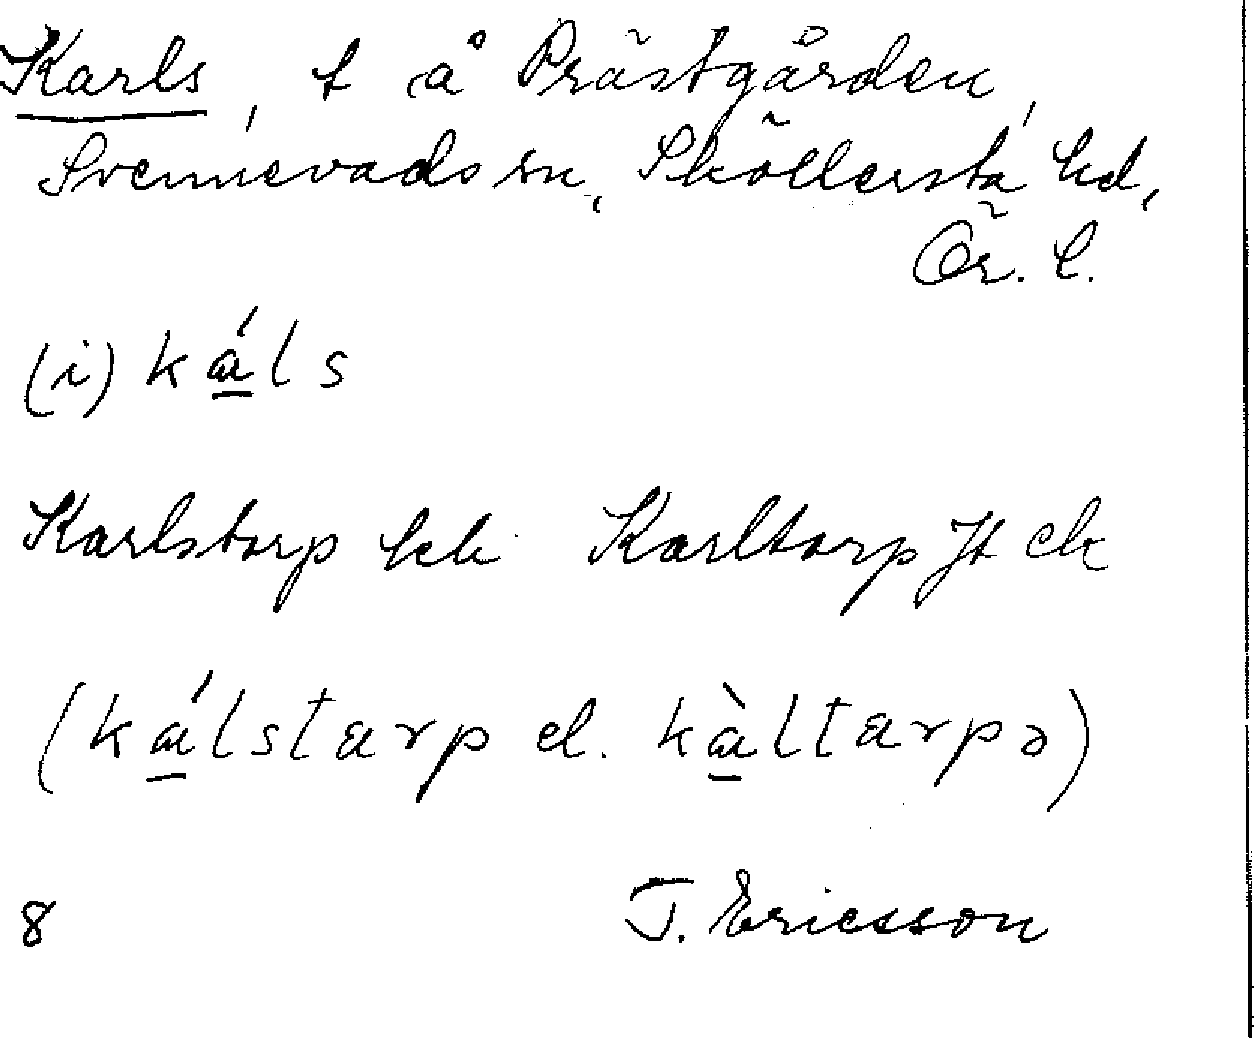 Karls, t å Prästgården,
Svennevads sn, Sköllersta hd,
Ör. l.
(i) ká̱ls
Karlstorp hk Karltorp Jt ek
(ká̱lstarp el. kà̱ltarpə)
8 J. Ericsson